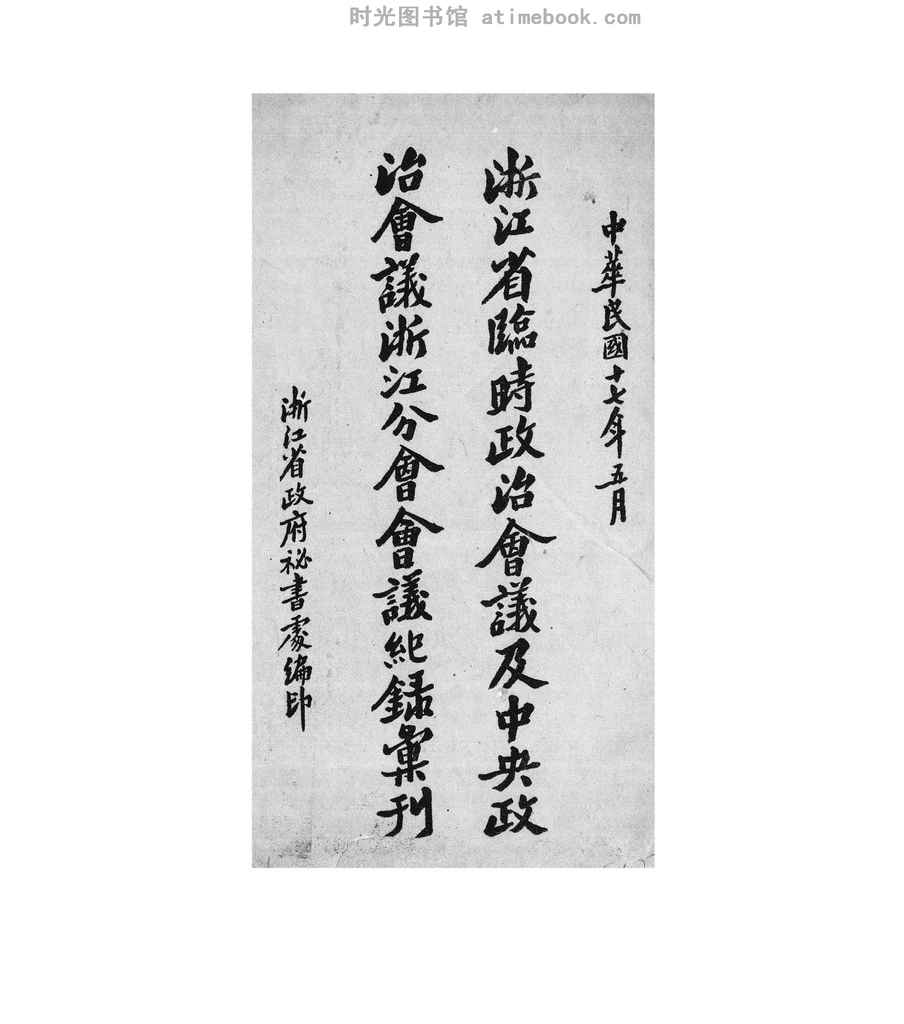 时光图书馆 atimebook.com
中華民國十七年五月
浙江省臨時政治會議及中央政
治會議浙江分會會議紀録彙刊
浙江省政府祕書處編印